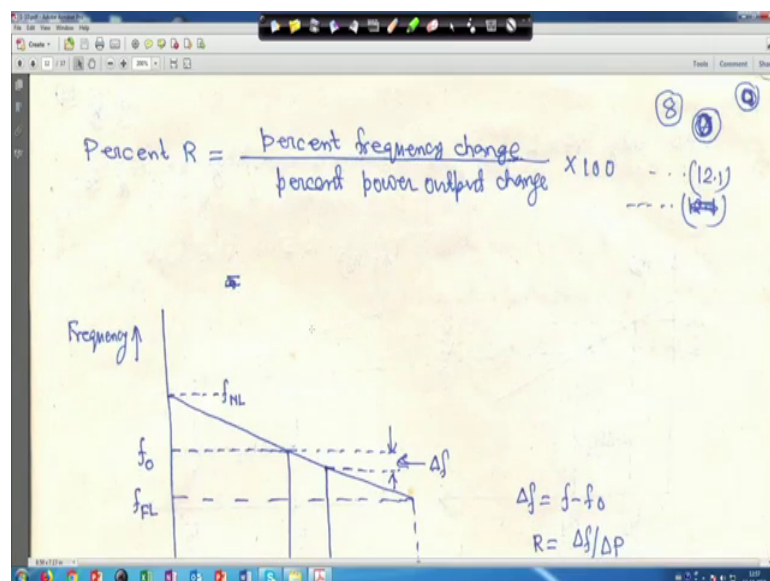 File Edit View Window Help
Create
12 / 27
200%
Tools Comment
8
Percent R = percent frequency change / percent power output change × 100 - - - - (12.1)
Frequency ↑
f_NL
f_0
Δf
f_FL
Δf = f - f_0
R = Δf/ΔP
8.50 x 7.17 in